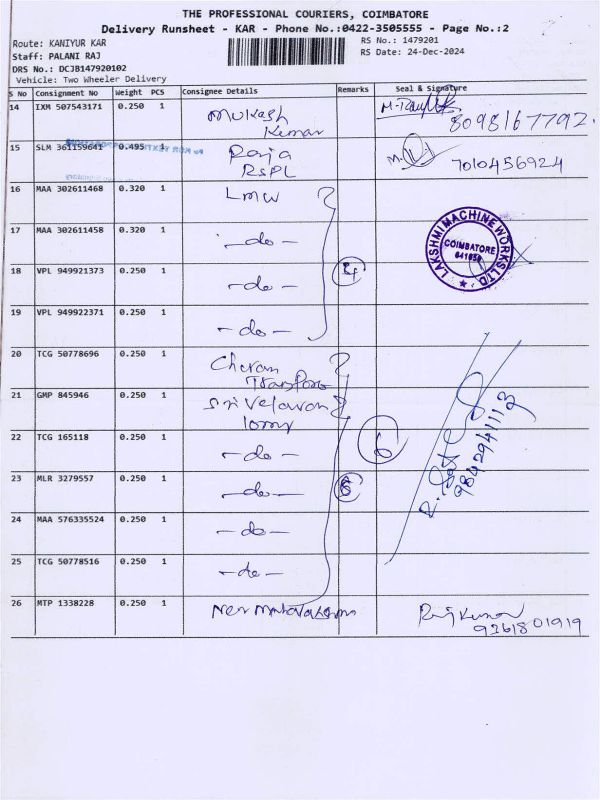 THE PROFESSIONAL COURIERS, COIMBATORE
Delivery Runsheet - KAR - Phone No.:0422-3505555 - Page No.:2
Route: KANIYUR KAR
RS No.: 1479201
Staff: PALANI RAJ
RS Date: 24-Dec-2024
DRS No.: DCJB147920102
Vehicle: Two Wheeler Delivery
S No Consignment No Weight PCS Consignee Details Remarks Seal & Signature
14 IXM 507543171 0.250 1 Mukash
Kumar 8098167792.
15 SLM 361159641 0.495 1 Raja
RSPL 7010456924
16 MAA 302611468 0.320 1 LMW
17 MAA 302611458 0.320 1 -do-
LAKSHMI MACHINE WORKS LTD
COIMBATORE
18 VPL 949921373 0.250 1 -do- 4
19 VPL 949922371 0.250 1 -do-
20 TCG 50778696 0.250 1 Cheran
Transport
21 GMP 845946 0.250 1 Sri Velavan
lorry
22 TCG 165118 0.250 1 -do- 6
23 MLR 3279557 0.250 1 -do-
9842941113
24 MAA 576335524 0.250 1 -do-
25 TCG 50778516 0.250 1 -do-
26 MTP 1338228 0.250 1 New
Raj Kumar
9261801919